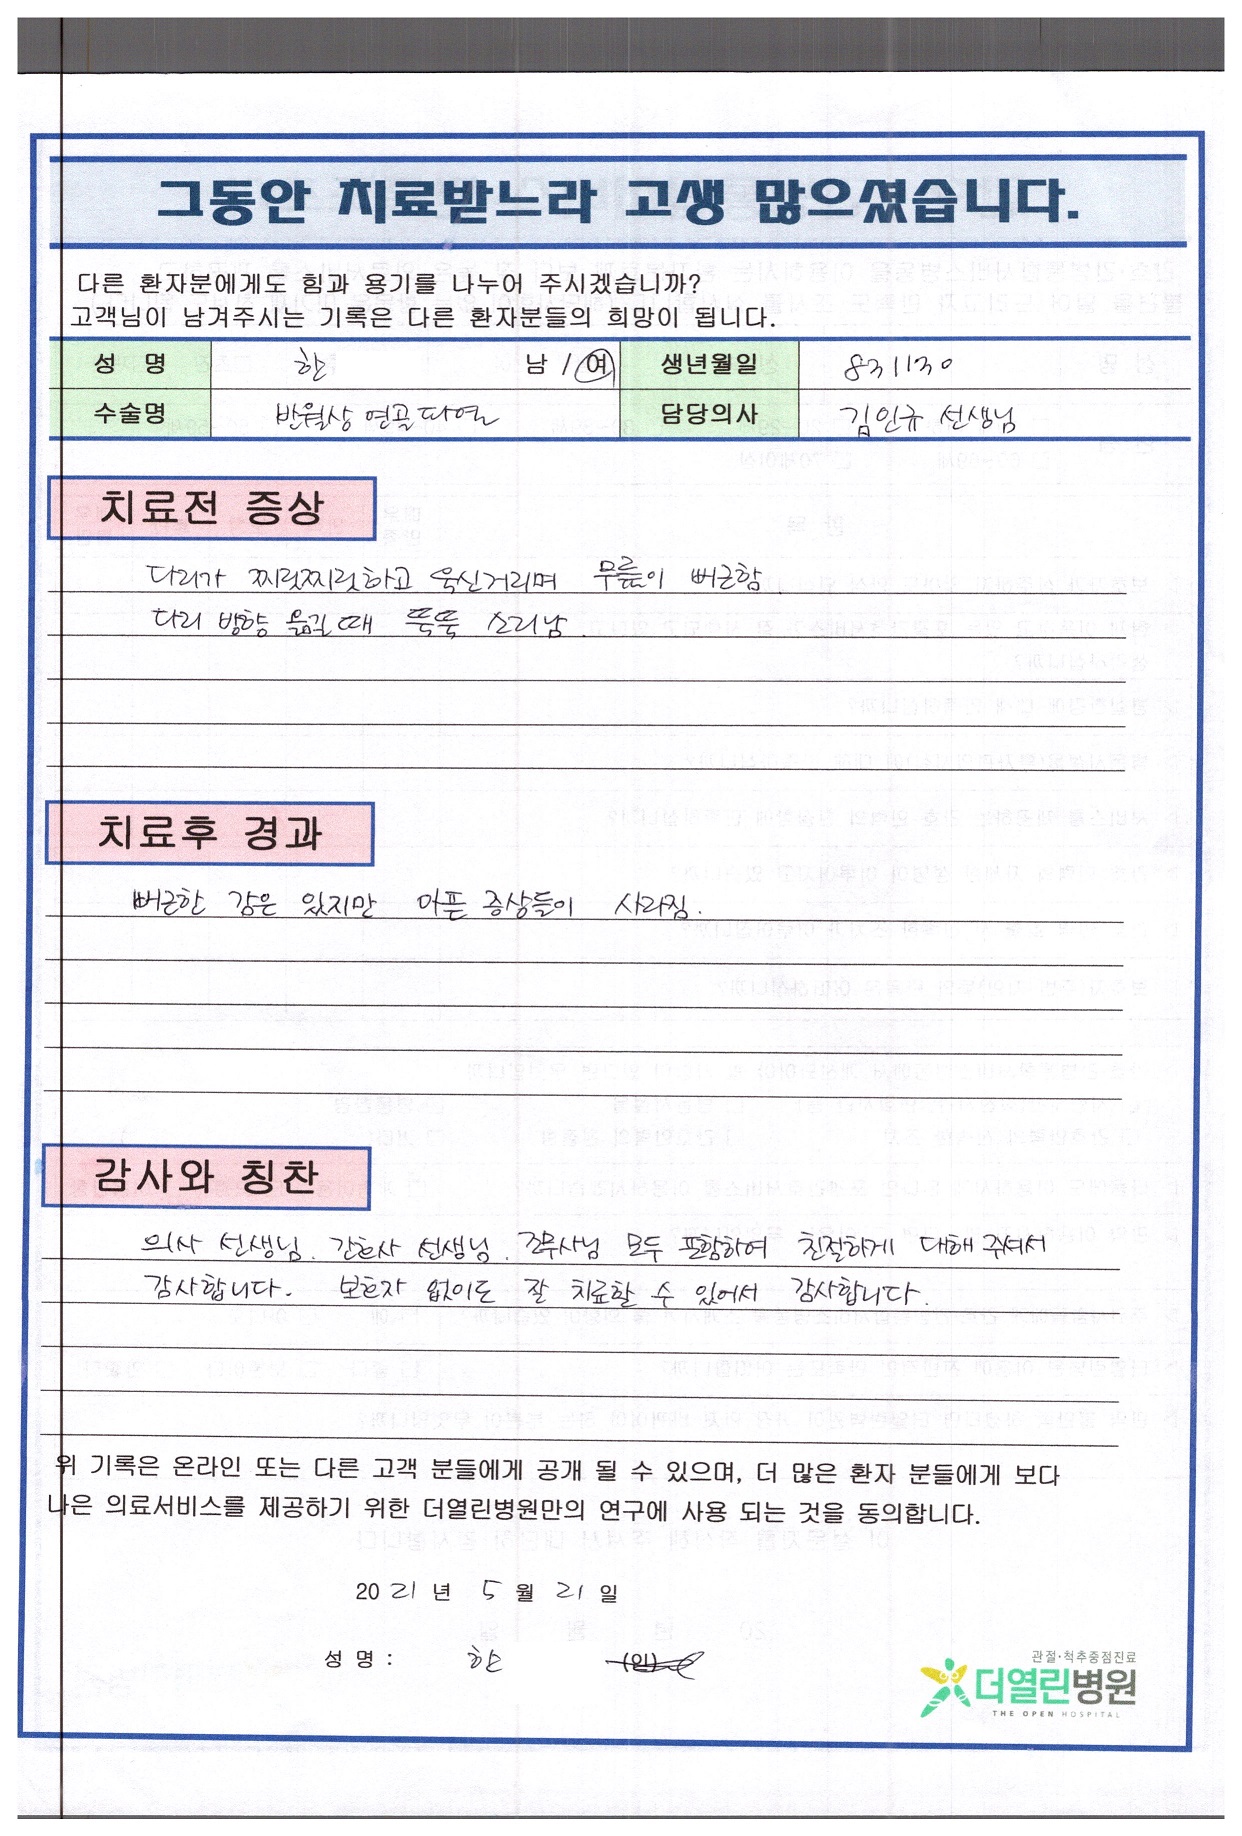 그동안 치료받느라 고생 많으셨습니다.
다른 환자분에게도 힘과 용기를 나누어 주시겠습니까?
고객님이 남겨주시는 기록은 다른 환자분들의 희망이 됩니다.
성 명 한 남 / 여 생년월일 831130
수술명 반월상 연골 파열 담당의사 김인규 선생님
치료전 증상
다리가 찌릿찌릿하고 욱신거리며 무릎이 뻐근함.
다리 방향 옮길 때 뚝뚝 소리남.
치료후 경과
뻐근한 감은 있지만 아픈 증상들이 사라짐.
감사와 칭찬
의사 선생님. 간호사 선생님. 조무사님 모두 포함하여 친절하게 대해 주셔서
감사합니다. 보호자 없이도 잘 치료할 수 있어서 감사합니다.
위 기록은 온라인 또는 다른 고객 분들에게 공개 될 수 있으며, 더 많은 환자 분들에게 보다
나은 의료서비스를 제공하기 위한 더열린병원만의 연구에 사용 되는 것을 동의합니다.
2021 년 5 월 21 일
성 명 : 한 (인)
관절·척추중점진료
더열린병원
THE OPEN HOSPITAL